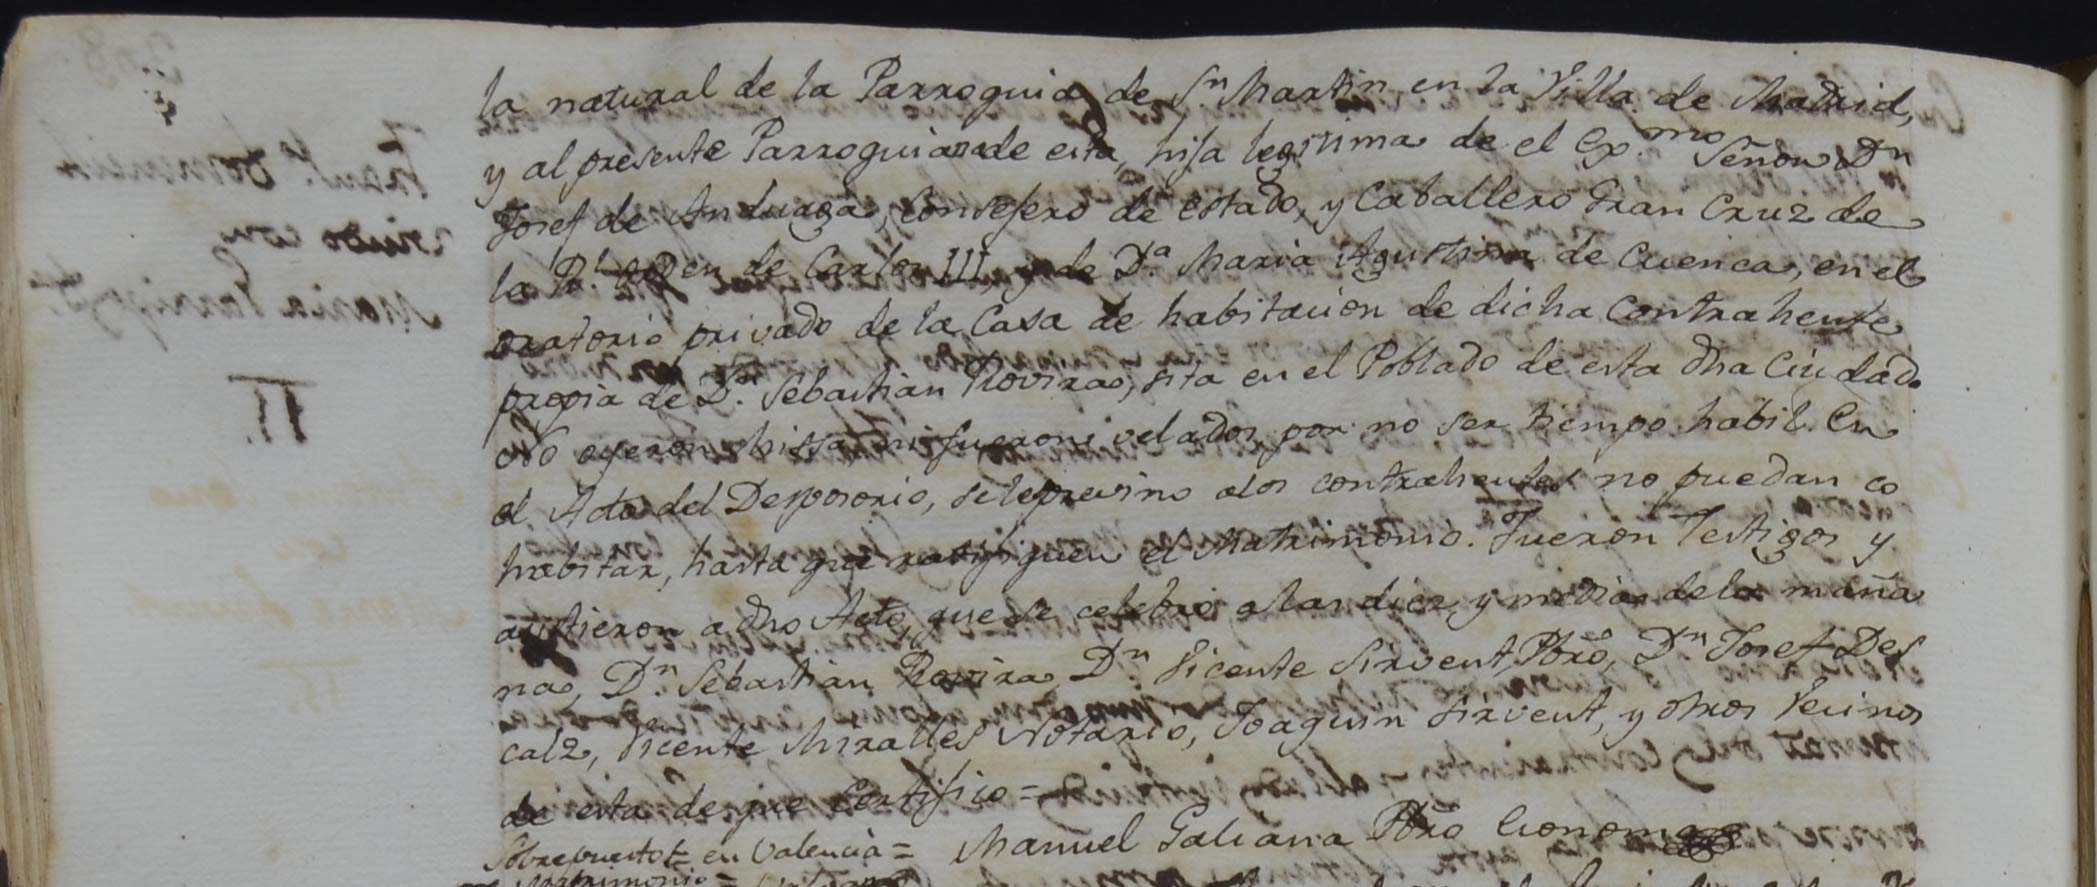 la natural de la Parroquia de Sn Martin en la Villa de Madrid,
y al presente Parroquiana de esta, hija legitima de el Exmo Señor Dn
Josef de Anduaga, Consejero de estado, y Caballero Gran Cruz de
la Rl. orden de Carlos III, y de Da. Maria Agustina de Cuenca, en el
oratorio privado de la Casa de habitacion de dicha Contrahente
propia de Dn. Sebastian Rovira, sita en el Poblado de esta dha Ciudad.
No oyeron Missa, ni fueron velados, por no ser tiempo habil. En
el Acto del Desposorio, se le previno a los contrahentes no puedan co
habitar, hasta que ratifiquen el Matrimonio. Fueron Testigos y
asistieron a dho Acto, que se celebró a las diez y media de la maña
na, Dn. Sebastian Rovira, Dn. Vicente Sirvent Pbro, Dn Josef Des
calz, Vicente Miralles Notario, Joaquin Sirvent, y otros Vecinos
de esta de que Certifico =
Sobrepuesto = en Valencia = Manuel Galiana Pbro Economo
Matrimonio =